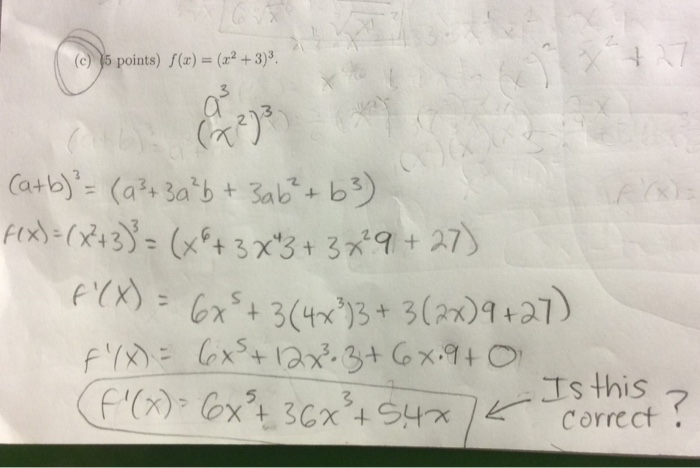 (c) (5 points) f(x) = (x² + 3)³.
a³
(x²)³
(a+b)³ = (a³ + 3a²b + 3ab² + b³)
f(x) = (x²+3)³ = (x⁶ + 3x⁴3 + 3x²9 + 27)
f'(x) = 6x⁵ + 3(4x³)3 + 3(2x)9 + 27)
f'(x) = 6x⁵ + 12x³·3 + 6x·9 + 0
f'(x) = 6x⁵ + 36x³ + 54x ← Is this correct?